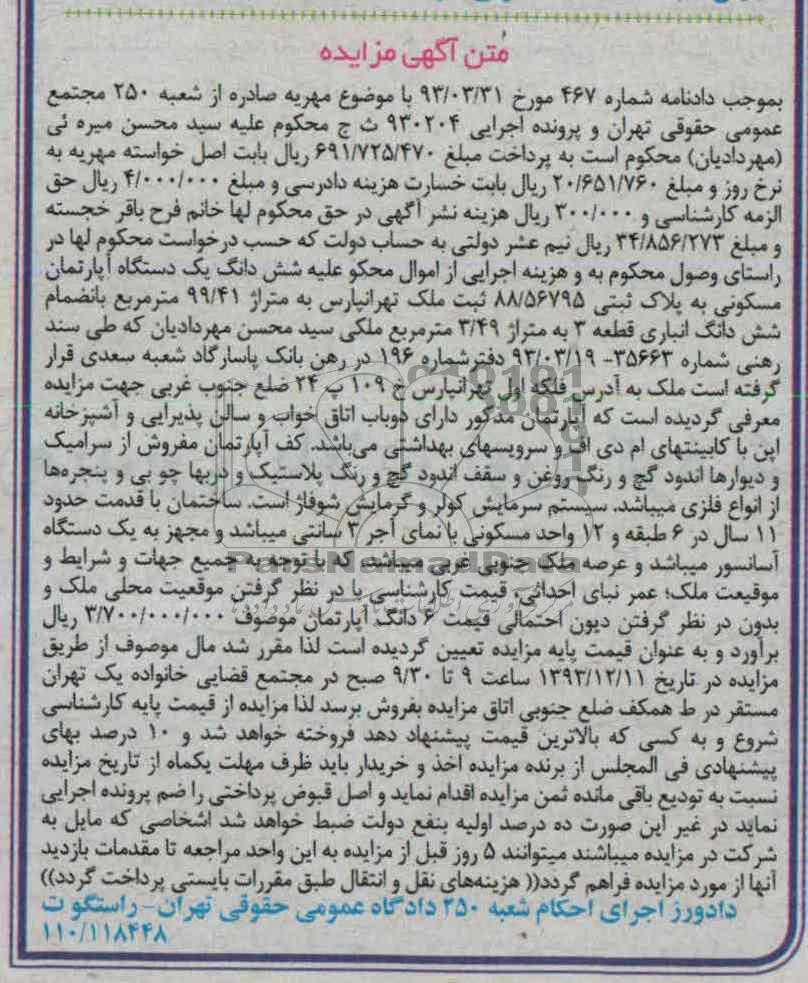 متن آگهی مزایده
بموجب دادنامه شماره ۴۶۷ مورخ ۹۳/۰۳/۳۱ با موضوع مهریه صادره از شعبه ۲۵۰ مجتمع
عمومی حقوقی تهران و پرونده اجرایی ۹۳۰۲۰۴ ث ج محکوم علیه سید محسن میره ئی
(مهردادیان) محکوم است به پرداخت مبلغ ۶۹۱/۷۲۵/۴۷۰ ریال بابت اصل خواسته مهریه به
نرخ روز و مبلغ ۲۰/۶۵۱/۷۶۰ ریال بابت خسارت هزینه دادرسی و مبلغ ۴/۰۰۰/۰۰۰ ریال حق
الزمه کارشناسی و ۳۰۰/۰۰۰ ریال هزینه نشر آگهی در حق محکوم لها خانم فرح باقر خجسته
و مبلغ ۳۴/۸۵۶/۲۷۳ ریال نیم عشر دولتی به حساب دولت که حسب درخواست محکوم لها در
راستای وصول محکوم به و هزینه اجرایی از اموال محکو علیه شش دانگ یک دستگاه آپارتمان
مسکونی به پلاک ثبتی ۸۸/۵۶۷۹۵ ثبت ملک تهرانپارس به متراژ ۹۹/۴۱ مترمربع بانضمام
شش دانگ انباری قطعه ۳ به متراژ ۳/۴۹ مترمربع ملکی سید محسن مهردادیان که طی سند
رهنی شماره ۳۵۶۶۳- ۹۳/۰۳/۱۹ دفترشماره ۱۹۶ در رهن بانک پاسارگاد شعبه سعدی قرار
گرفته است ملک به آدرس فلکه اول تهرانپارس خ ۱۰۹ پ ۲۴ ضلع جنوب غربی جهت مزایده
معرفی گردیده است که آپارتمان مذکور دارای دوباب اتاق خواب و سالن پذیرایی و آشپزخانه
اپن با کابینتهای ام دی اف و سرویسهای بهداشتی می‌باشد. کف آپارتمان مفروش از سرامیک
و دیوارها اندود گچ و رنگ روغن و سقف اندود گچ و رنگ پلاستیک و دربها چو بی و پنجره‌ها
از انواع فلزی میباشد. سیستم سرمایش کولر و گرمایش شوفاژ است. ساختمان با قدمت حدود
۱۱ سال در ۶ طبقه و ۱۲ واحد مسکونی با نمای آجر ۳ سانتی میباشد و مجهز به یک دستگاه
آسانسور میباشد و عرصه ملک جنوبی غربی میباشد. که با توجه به جمیع جهات و شرایط و
موقیعت ملک؛ عمر نبای احداثی، قیمت کارشناسی با در نظر گرفتن موقعیت محلی ملک و
بدون در نظر گرفتن دیون احتمالی قیمت ۶ دانگ آپارتمان موصوف ۳/۷۰۰/۰۰۰/۰۰۰ ریال
برآورد و به عنوان قیمت پایه مزایده تعیین گردیده است لذا مقرر شد مال موصوف از طریق
مزایده در تاریخ ۱۳۹۳/۱۲/۱۱ ساعت ۹ تا ۹/۳۰ صبح در مجتمع قضایی خانواده یک تهران
مستقر در ط همکف ضلع جنوبی اتاق مزایده بفروش برسد لذا مزایده از قیمت پایه کارشناسی
شروع و به کسی که بالاترین قیمت پیشنهاد دهد فروخته خواهد شد و ۱۰ درصد بهای
پیشنهادی فی المجلس از برنده مزایده اخذ و خریدار باید ظرف مهلت یکماه از تاریخ مزایده
نسبت به تودیع باقی مانده ثمن مزایده اقدام نماید و اصل قبوض پرداختی را ضم پرونده اجرایی
نماید در غیر این صورت ده درصد اولیه بنفع دولت ضبط خواهد شد اشخاصی که مایل به
شرکت در مزایده میباشند میتوانند ۵ روز قبل از مزایده به این واحد مراجعه تا مقدمات بازدید
آنها از مورد مزایده فراهم گردد(( هزینه‌های نقل و انتقال طبق مقررات بایستی پرداخت گردد))
دادورز اجرای احکام شعبه ۲۵۰ دادگاه عمومی حقوقی تهران- راستگو ت
۱۱۰/۱۱۸۴۴۸
ParsNamadData